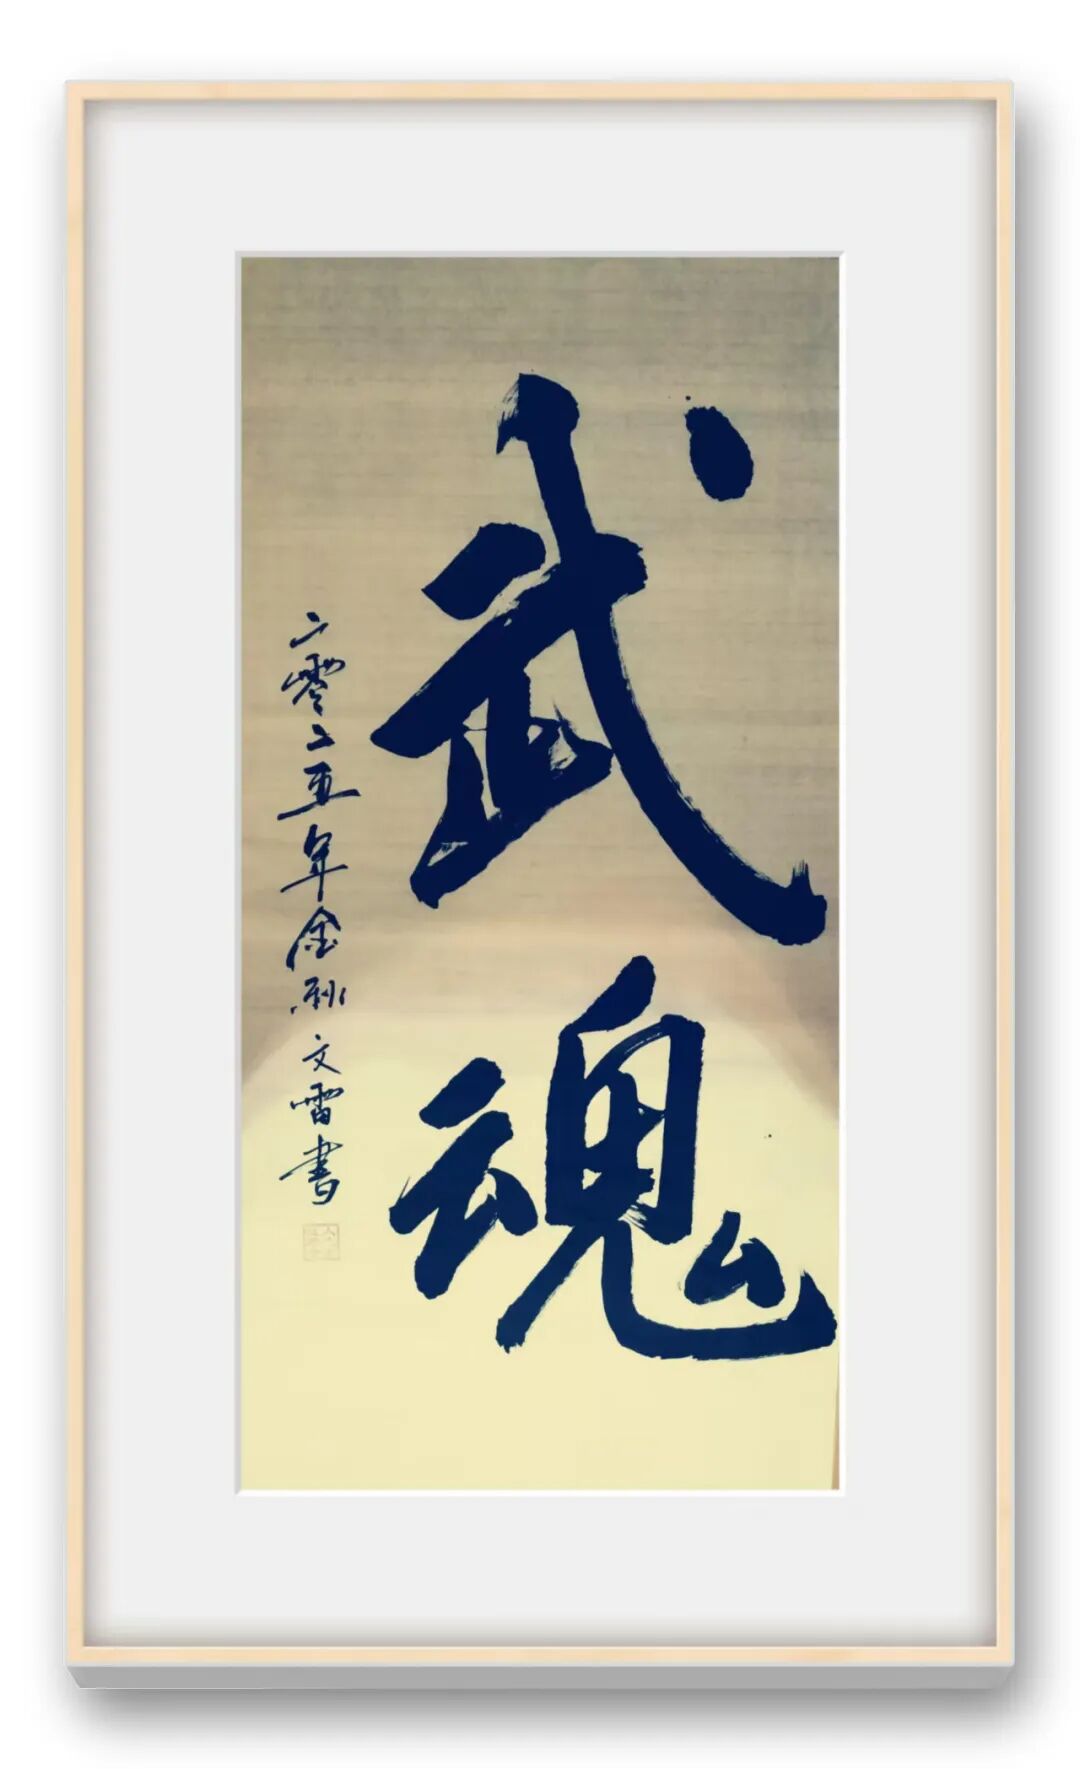 武魂
二零二五年金秋文雷書